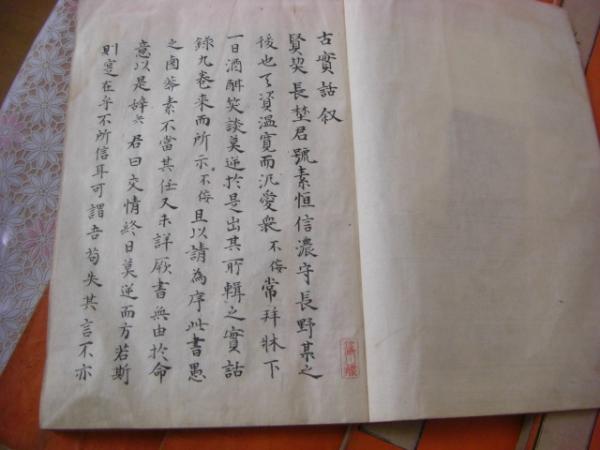 古實話叙
賢契長埜君號素恒信濃守長野某之
後也天資温寛而汎愛衆不侫常拜牀下
一日酒酣笑談莫逆於是出其所輯之實話
錄九卷来而所示不侫且以請為序此書愚
之鹵莽素不當其任又未詳厥書無由於命
意以是辞矣君曰交情終日莫逆而方若斯
則寔在乎不所信耳可謂吾苟失其言不亦